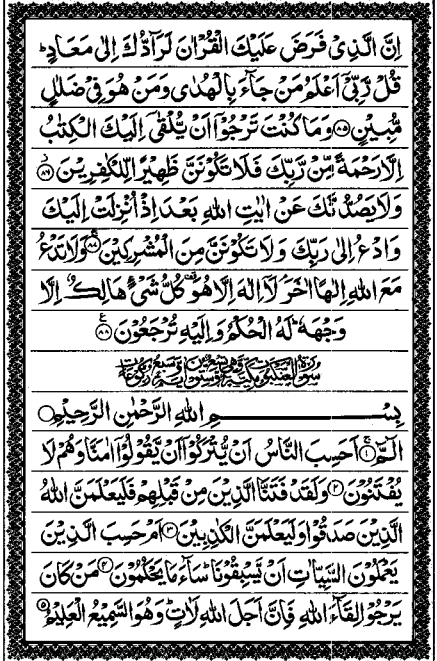 اِنَّ الَّذِیْ فَرَضَ عَلَیْكَ الْقُرْاٰنَ لَرَآدُّكَ اِلٰی مَعَادٍؕ
قُلْ رَّبِّیْۤ اَعْلَمُ مَنْ جَآءَ بِالْهُدٰی وَمَنْ هُوَ فِیْ ضَلٰلٍ
مُّبِیْنٍ۝۸۵ وَمَا كُنْتَ تَرْجُوْۤا اَنْ یُّلْقٰۤی اِلَیْكَ الْكِتٰبُ
اِلَّا رَحْمَةً مِّنْ رَّبِّكَ فَلَا تَكُوْنَنَّ ظَهِیْرًا لِّلْكٰفِرِیْنَ۝۸۶
وَلَا یَصُدُّنَّكَ عَنْ اٰیٰتِ اللّٰهِ بَعْدَ اِذْ اُنْزِلَتْ اِلَیْكَ
وَادْعُ اِلٰی رَبِّكَ وَلَا تَكُوْنَنَّ مِنَ الْمُشْرِكِیْنَ۝۸۷ وَلَا تَدْعُ
مَعَ اللّٰهِ اِلٰهًا اٰخَرَ ۘ لَاۤ اِلٰهَ اِلَّا هُوَ ۫ كُلُّ شَیْءٍ هَالِكٌ اِلَّا
وَجْهَهٗ ؕ لَهُ الْحُكْمُ وَاِلَیْهِ تُرْجَعُوْنَ۝۸۸
بِسْمِ اللّٰهِ الرَّحْمٰنِ الرَّحِیْمِ
الٓمّٓ۝۱ اَحَسِبَ النَّاسُ اَنْ یُّتْرَكُوْۤا اَنْ یَّقُوْلُوْۤا اٰمَنَّا وَهُمْ لَا
یُفْتَنُوْنَ۝۲ وَلَقَدْ فَتَنَّا الَّذِیْنَ مِنْ قَبْلِهِمْ فَلَیَعْلَمَنَّ اللّٰهُ
الَّذِیْنَ صَدَقُوْا وَلَیَعْلَمَنَّ الْكٰذِبِیْنَ۝۳ اَمْ حَسِبَ الَّذِیْنَ
یَعْمَلُوْنَ السَّیِّاٰتِ اَنْ یَّسْبِقُوْنَا ؕ سَآءَ مَا یَحْكُمُوْنَ۝۴ مَنْ كَانَ
یَرْجُوْا لِقَآءَ اللّٰهِ فَاِنَّ اَجَلَ اللّٰهِ لَاٰتٍ ؕ وَهُوَ السَّمِیْعُ الْعَلِیْمُ۝۵